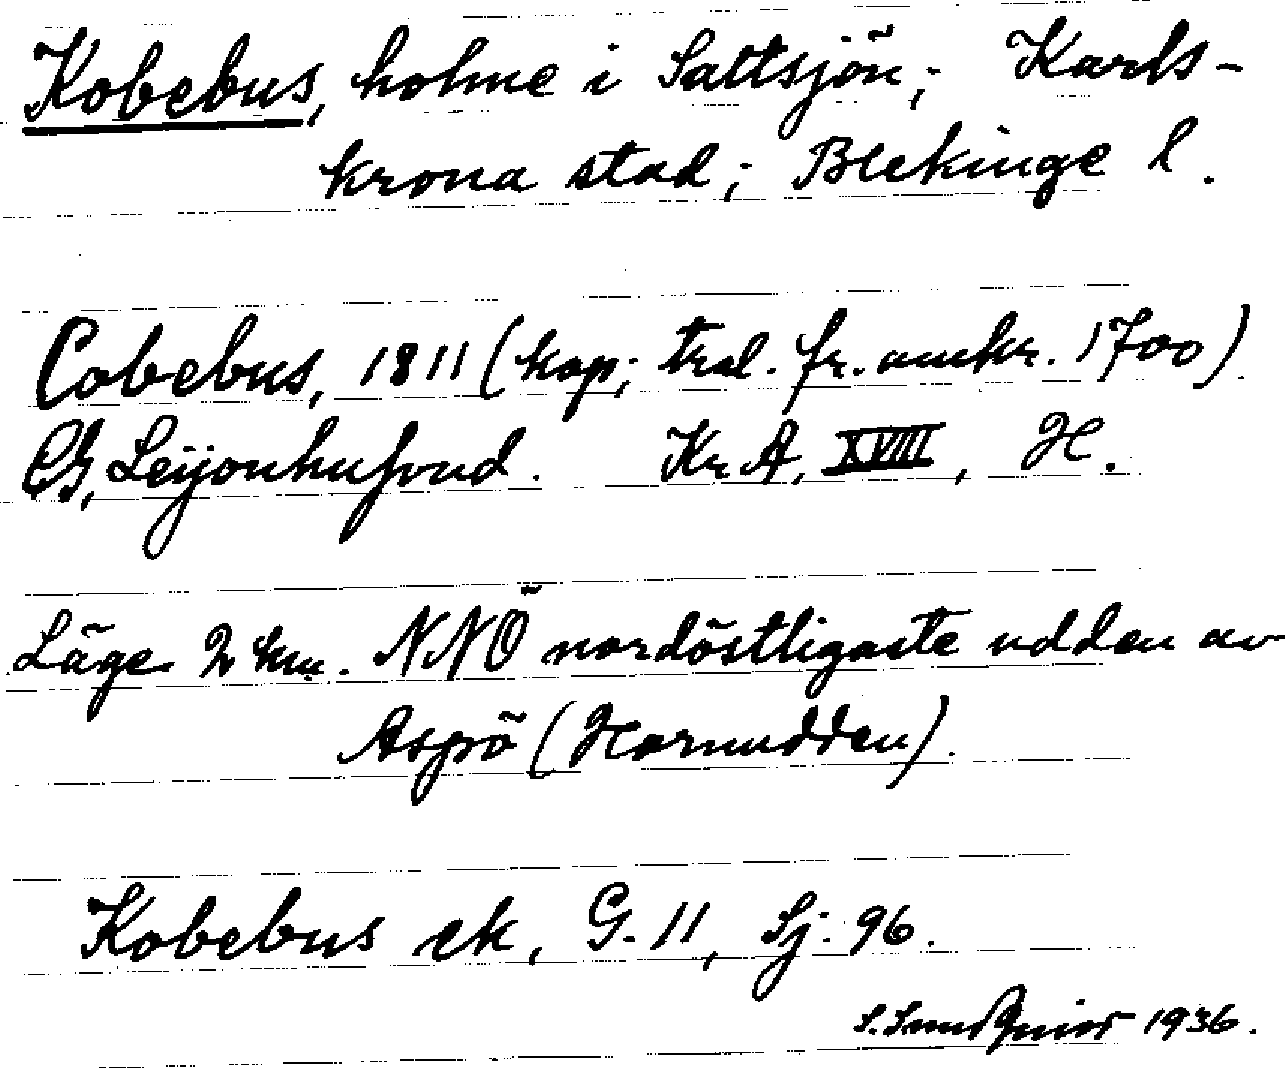 Kobebus, holme i Saltsjön; Karls-
krona stad; Blekinge l.
Cobebus, 1811 (kop; tral. fr. omkr. 1700)
Ch, Leijonhufvud. Kr A, XVIII, H.
Läge 2 km. NNÖ nordöstligaste udden av
Aspö (Hornudden).
Kobebus ek, G. 11, Sj: 96.
1936.